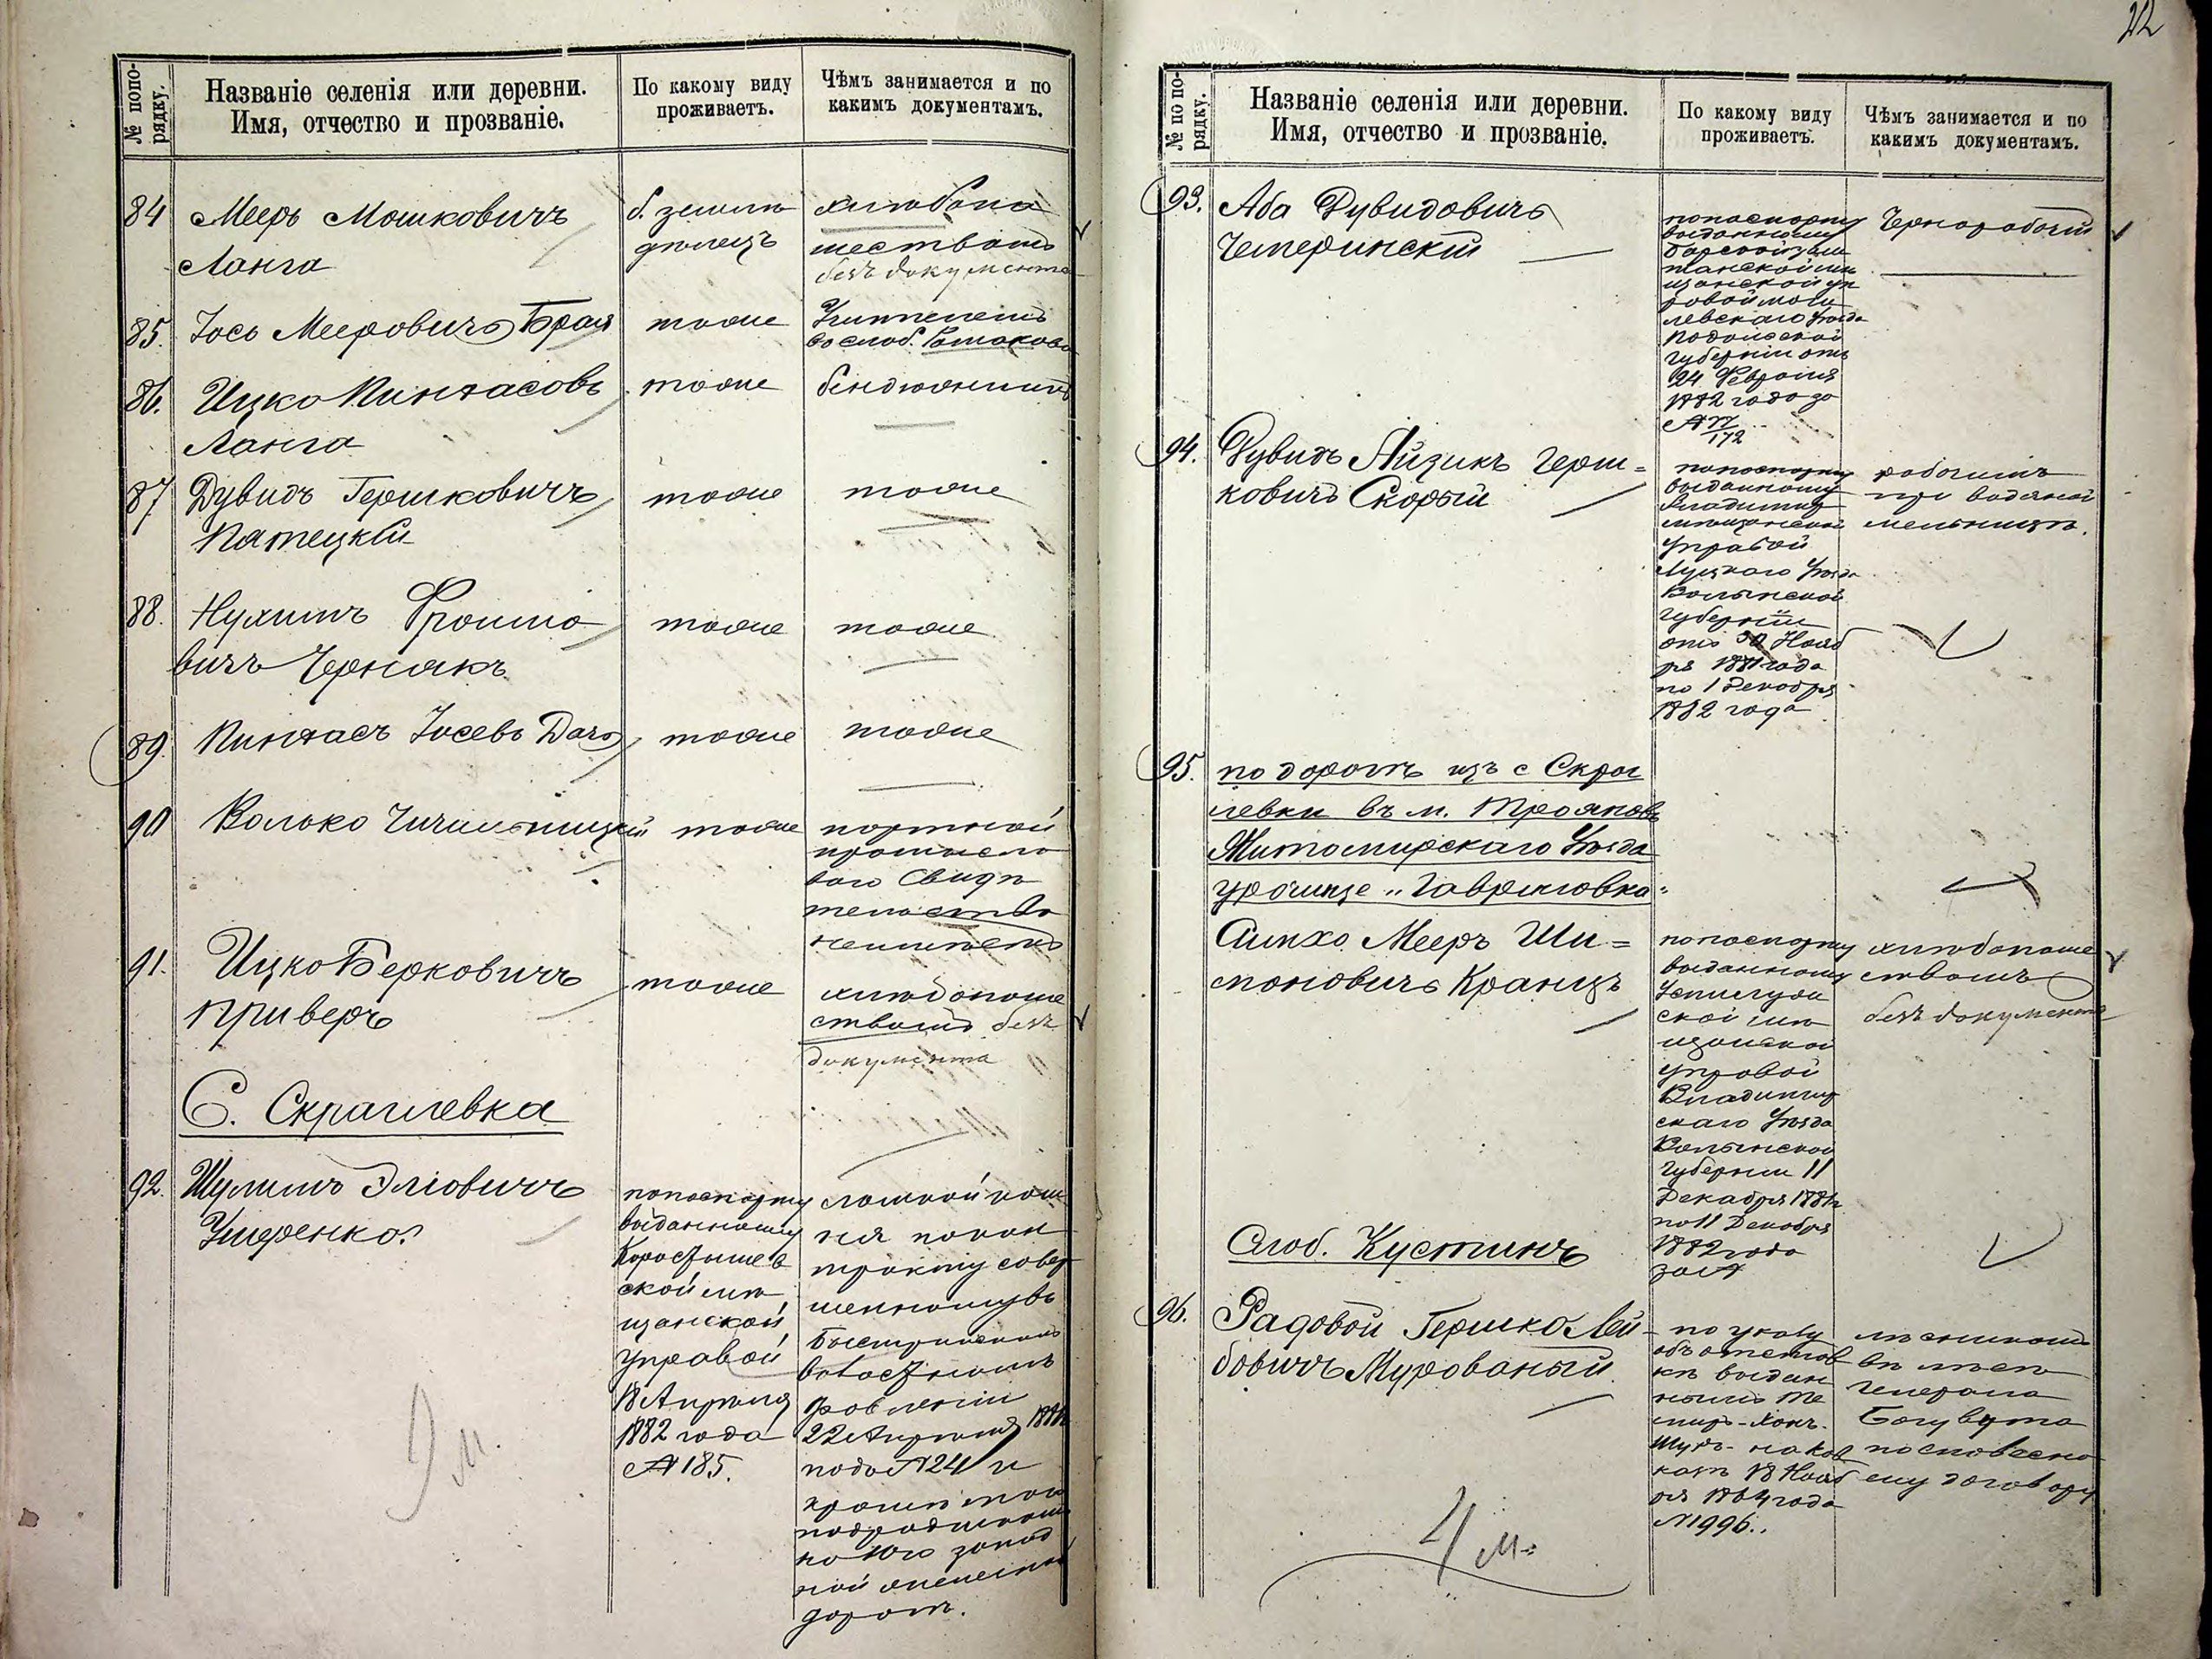 № попо-
рядку.
Названіе селенія или деревни.
Имя, отчество и прозваніе.
По какому виду
проживаетъ.
Чѣмъ занимается и по
какимъ документамъ.
84 Мееръ Мошковичъ
Ланга
б. земле
дѣлецъ
хлѣбопа
шествомъ
безъ документа
85. Іось Мееровичъ
тоже
Учителемъ
въ слоб.
86. Ицко Пинхасовъ
Ланга
тоже
87 Дувидъ Гершковичъ
Патецкій
тоже
тоже
88. Нухимъ Фроимо
вичъ Чернякъ
тоже
тоже
89. Пинхасъ Іосевъ
тоже
тоже
90 Волько
тоже
портной
промысло
ваго свидѣ
тельства
неимѣетъ
91. Ицко Берковичъ
Приверъ
тоже
хлѣбопаше
ствомъ безъ
документа
С. Скраглевка
92. Шулимъ Эліовичъ
Ушеренко.
попаспорту
выданному
Коростышев
ской мѣ
щанской
управой
18 Апрѣля
1882 года
№ 185.
ломкой кам
ня по кон
тракту совер
шенному въ
Быстрикскомъ
волостномъ
правленіи
22 Апрѣля
подъ № 24 и
кромѣ того
на Юго запад
ной желѣзной
дорогѣ.
9 м.
22
№ по по-
рядку.
Названіе селенія или деревни.
Имя, отчество и прозваніе.
По какому виду
проживаетъ.
Чѣмъ занимается и по
какимъ документамъ.
93. Аба Дувидовичъ
Чемеринскій
попаспорту
выданному
щанской уп
равой моги
левскаго уѣзда
Подольской
губерніи отъ
24 Февраля
1882 года за
№ 77/172
Чернорабочій
94. Дувидъ Айзикъ Герш=
ковичъ Скорый
попаспорту
выданному
мѣщанской
управой
Луцкаго уѣзда
Волынской
губерніи
отъ 30 Нояб
ря 1881 года
по 1 Декабря
1882 года
рабочимъ
при водяной
мельницѣ.
95. по дорогѣ изъ с Скраг
левки въ м. Трояновъ
Житомирскаго Уѣзда
урочище „Гавриловка"
Симхо Мееръ Ши=
моновичъ Кранцъ
попаспорту
выданному
Устилуж
ской мѣ
щанской
управой
Владимир
скаго Уѣзда
Волынской
губерніи 11
Декабря 1881 г
по 11 Декабря
1882 года
за №
хлѣбопаше
ствомъ
безъ документа
Слоб. Кустинъ
96. Рядовой Гершко Лей-
бовичъ Мурованый
по указу
объ отстав
кѣ выдан
ному Те
миръ-Ханъ-
Шурѣ
18 Нояб
ря 1864 года
№ 1996.
лѣсникомъ
въ лѣсѣ
Генерала
по словесно
му договору
4 м.